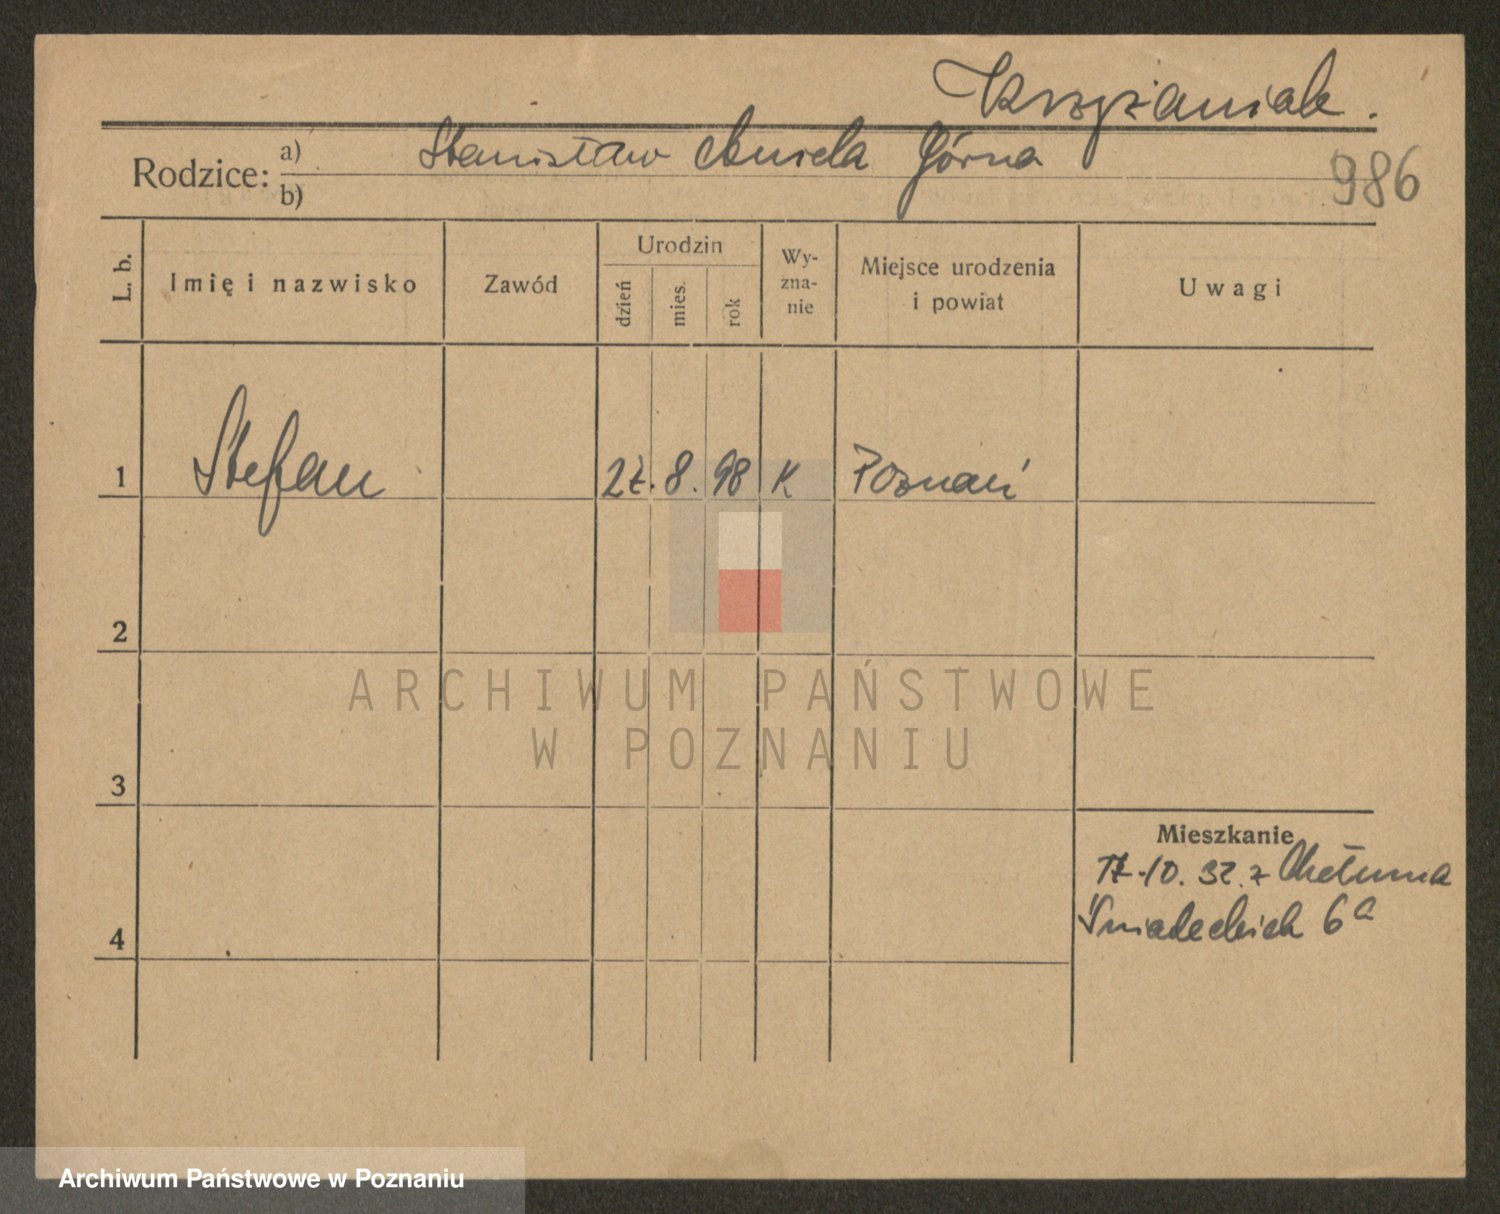 Krzyżaniak.
Rodzice: a) Stanisław Aniela Górna
b)
986
L. b.
Imię i nazwisko
Zawód
Urodzin
dzień
mies.
rok
Wy-
zna-
nie
Miejsce urodzenia
i powiat
Uwagi
1 Stefan 27. 8. 98 K Poznań
2
ARCHIWUM PAŃSTWOWE
W POZNANIU
3
Mieszkanie
17.10. 32. z Chełmna
Śniadeckich 6a
4
Archiwum Państwowe w Poznaniu